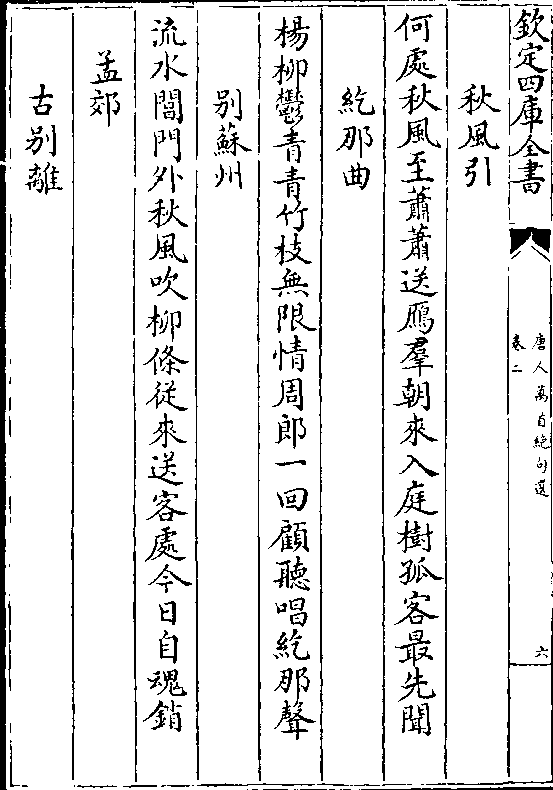 欽定四庫全書
唐人萬首絶句選
卷二
六
秋風引
何處秋風至蕭蕭送鴈羣朝來入庭樹孤客最先聞
紇那曲
楊柳鬱青青竹枝無限情周郎一回顧聽唱紇那聲
别蘇州
流水閶門外秋風吹柳條從來送客處今日自魂銷
孟郊
古别離